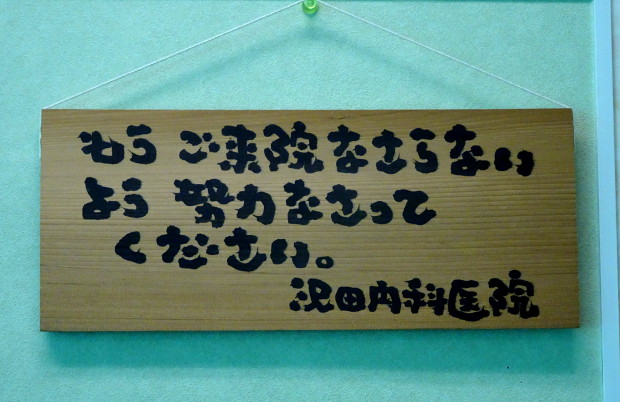 もう ご来院なさらない
よう 努力なさって
ください。
沢田内科医院